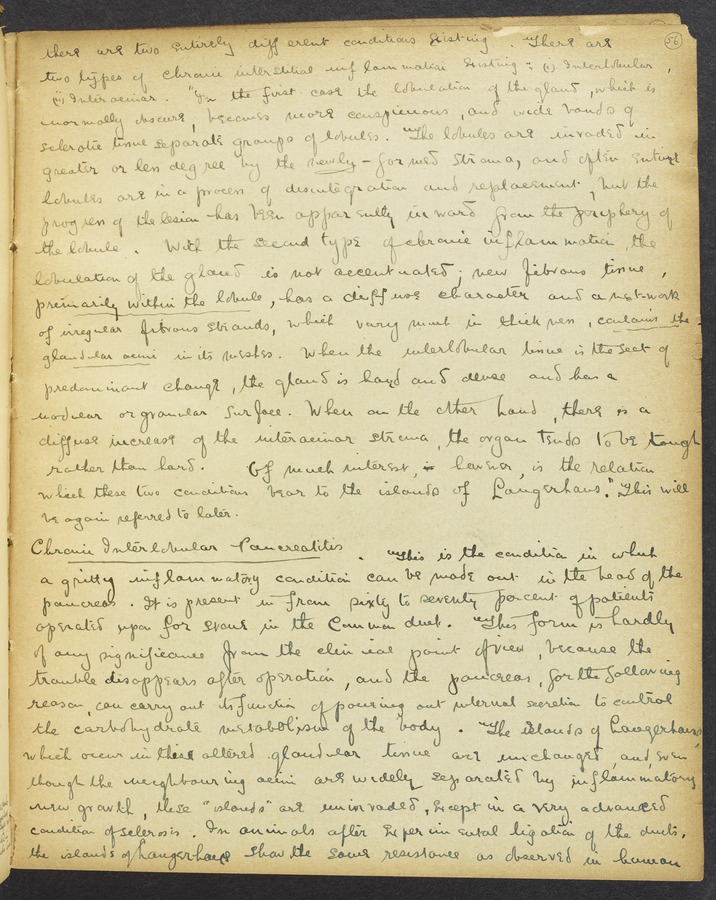 56
there are two entirely different conditions existing. "There are
two types of chronic interstitial inflammation existing: (i) Interlobular,
(ii) Interacinar. "In the first case the lobulation of the gland, which is
normally obscure, becomes more conspicuous, and wide bands of
sclerotic tissue separate groups of lobules. "The lobules are invaded in
greater or less degree by the newly-formed stroma, and often entire
lobules are in a process of disintegration and replacement, but the
progress of the lesion has been apparently inward from the periphery of
the lobule. With the second type of chronic inflammation, the
lobulation of the gland is not accentuated; new fibrous tissue,
primarily within the lobule, has a diffuse character and a net-work
of irregular fibrous strands, which vary much in thickness, contains the
glandular acini in its meshes. When the interlobular tissue is the seat of
predominant change, the gland is hard and dense and has a
nodular or granular surface. When on the other hand, there is a
diffuse increase of the interacinar stroma, the organ tends to be tough
rather than hard. Of much interest, however, is the relation
which these two conditions bear to the islands of Langerhans." This will
be again referred to later.
Chronic Interlobular Pancreatitis. "This is the condition in which
a gritty inflammatory condition can be made out in the head of the
pancreas. It is present in from sixty to seventy percent of patients
operated upon for stone in the Common duct. "This form is hardly
of any significance from the clinical point of view, because the
trouble disappears after operation, and the pancreas, for the following
reason, can carry out its function of pouring out internal secretion to control
the carbohydrate metabolism of the body. "The islands of Langerhans,
which occur in these altered glandular tissue are unchanged, and, even
though the neighbouring acini are widely separated by inflammatory
new growth, these "islands" are uninvaded, except in a very advanced
condition of sclerosis. In animals after experimental ligation of the ducts,
the islands of Langerhans show the same resistance as observed in human